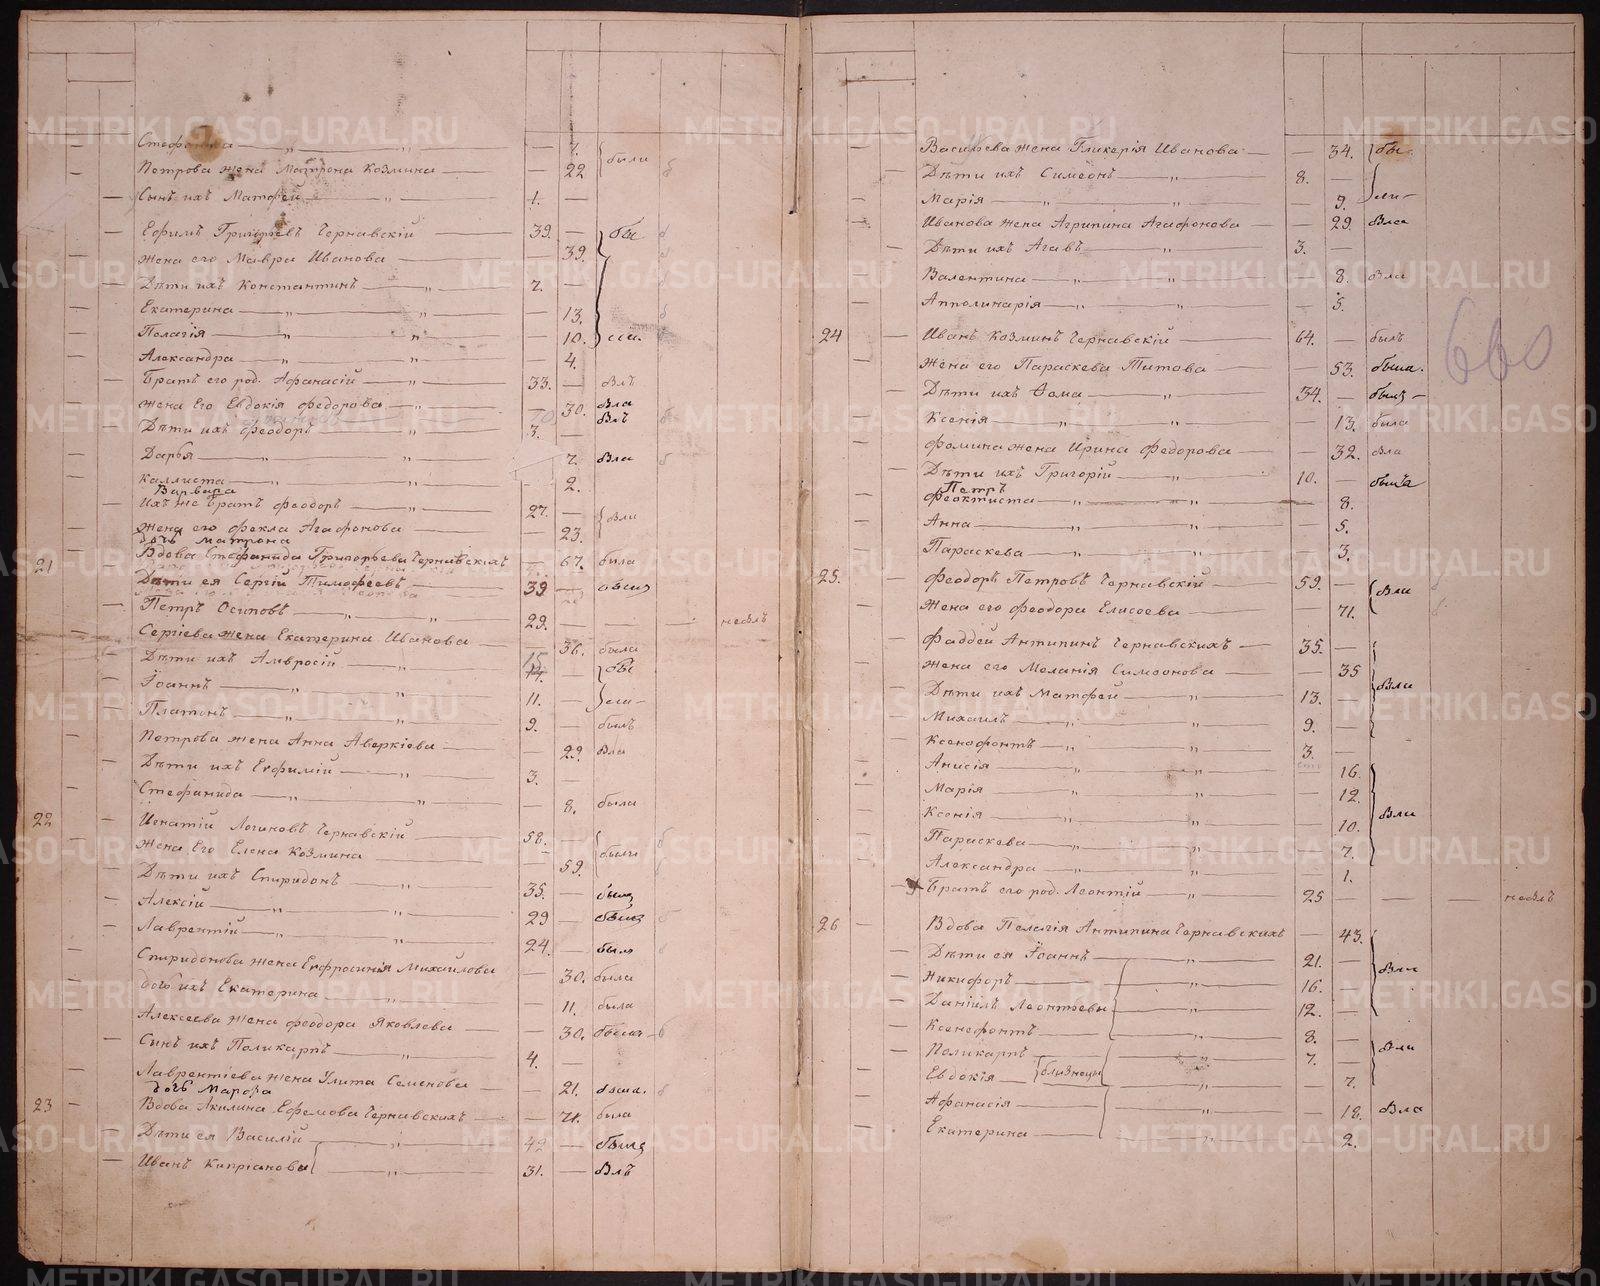 — 7. были
Петрова жена Матрона Козмина — 22
Сынъ ихъ Матфей — „ — 1. —
Ефимъ Григорьевъ Чернавскій — 39. — бы
жена его Мавра Иванова — 39.
Дѣти ихъ Константинъ — „ — 7. —
Екатерина — „ — „ — 13.
Пелагія — „ — „ — 10.
Александра — „ — „ — 4.
Братъ его род. Афанасій — „ — 33. — Блъ
жена Его Евдокія Федорова — „ — 30. Бла
Дѣти ихъ Феодоръ — „ — 3. — Блъ
Дарья — „ — „ — 7. Бла
Каллиста — „ — „ — 2.
Варвара
Ихъ же братъ Феодоръ — „ — 27. — Бли
жена его Фекла Агафонова — 23.
дочь Матрона
21 Вдова Стефанида Григорьева Чернавскихъ — 67. была
Дѣти ея Сергій Тимофеевъ — 39 —
Петръ Осиповъ — „ — „ — 29. — — — небылъ
Сергіева жена Екатерина Иванова — 36. была
Дѣти ихъ Амвросій — „ — 15 — бы
Іоаннъ — „ — „ — 11. — ли
Платонъ — „ — „ — 9. — былъ
Петрова жена Анна Аверкіева — 29. Бла
Дѣти ихъ Евфимій — „ — 3. —
Стефанида — „ — „ — 8. была
22 Игнатій Логиновъ Чернавскій — 58. — были
Жена Его Елена Козмина — 59.
Дѣти ихъ Спиридонъ — „ — 35. — былъ
Алексій — „ — „ — 29 — былъ
Лаврентій — „ — „ — 24. — былъ
Спиридонова жена Евфросинія Михайлова — 30. была
дочь ихъ Екатерина — „ — 11. была
Алексеева жена Феодора Яковлева — 30.
Сынъ ихъ Поликарпъ — „ — 4. —
Лаврентіева жена Улита Семенова — 21. была.
дочь Марфа
23 Вдова Акилина Ефремова Чернавскихъ — 71. была
Дѣти ея Василій — „ — 42 —
Иванъ Кипріановы — „ — 31. — Блъ
Васильева жена Гликерія Иванова — 34. бы
Дѣти ихъ Симеонъ — „ — 8. —
Марія — „ — „ — 9. ли
Иванова жена Агрипина Агафонова — 29. Бла
Дѣти ихъ Агавъ — „ — 3. —
Валентина — „ — „ — 8. Бла
Апполинарія — „ — „ — 5.
24 Иванъ Козминъ Чернавскій — 64. — былъ
660
жена его Параскева Титова — 53. была.
Дѣти ихъ Фома — „ — 34. — былъ
Ксенія — „ — „ — 13. была
Фомина жена Ирина Федорова — 32. Бла
Дѣти ихъ Григорій — „ — 10. —
Петръ
Феоктиста — „ — „ — 8.
Анна — „ — „ — 5.
Параскева — „ — „ — 3.
25. Феодоръ Петровъ Чернавскій — 59. — Бли
Жена его Феодора Елисеева — 71.
Фаддей Антипинъ Чернавскихъ — 35. —
Жена его Меланія Симеонова — 35 Бли
Дѣти ихъ Матфей — „ — 13. —
Михаилъ — „ — „ — 9. —
Ксенофонтъ — „ — „ — 3. —
Анисія — „ — „ — 16.
Марія — „ — „ — 12.
Ксенія — „ — „ — 10. Бли
Параскева — „ — „ — 7.
Александра — „ — „ — 1.
Братъ его род. Леонтій — „ — 25 — — — небылъ
26 Вдова Пелагія Антипина Чернавскихъ — 43.
Дѣти ея Іоаннъ — „ — 21. — Бли
Никифоръ — „ — 16. —
Даніилъ Леонтьевы — „ — 12. —
Ксенофонтъ — „ — 8. —
Поликарпъ — 7. — Бли
Евдокія — близнецы — „ — 7.
Афанасія — „ — 18. Бла
Екатерина — „ — 2.
METRIKI.GASO-URAL.RU